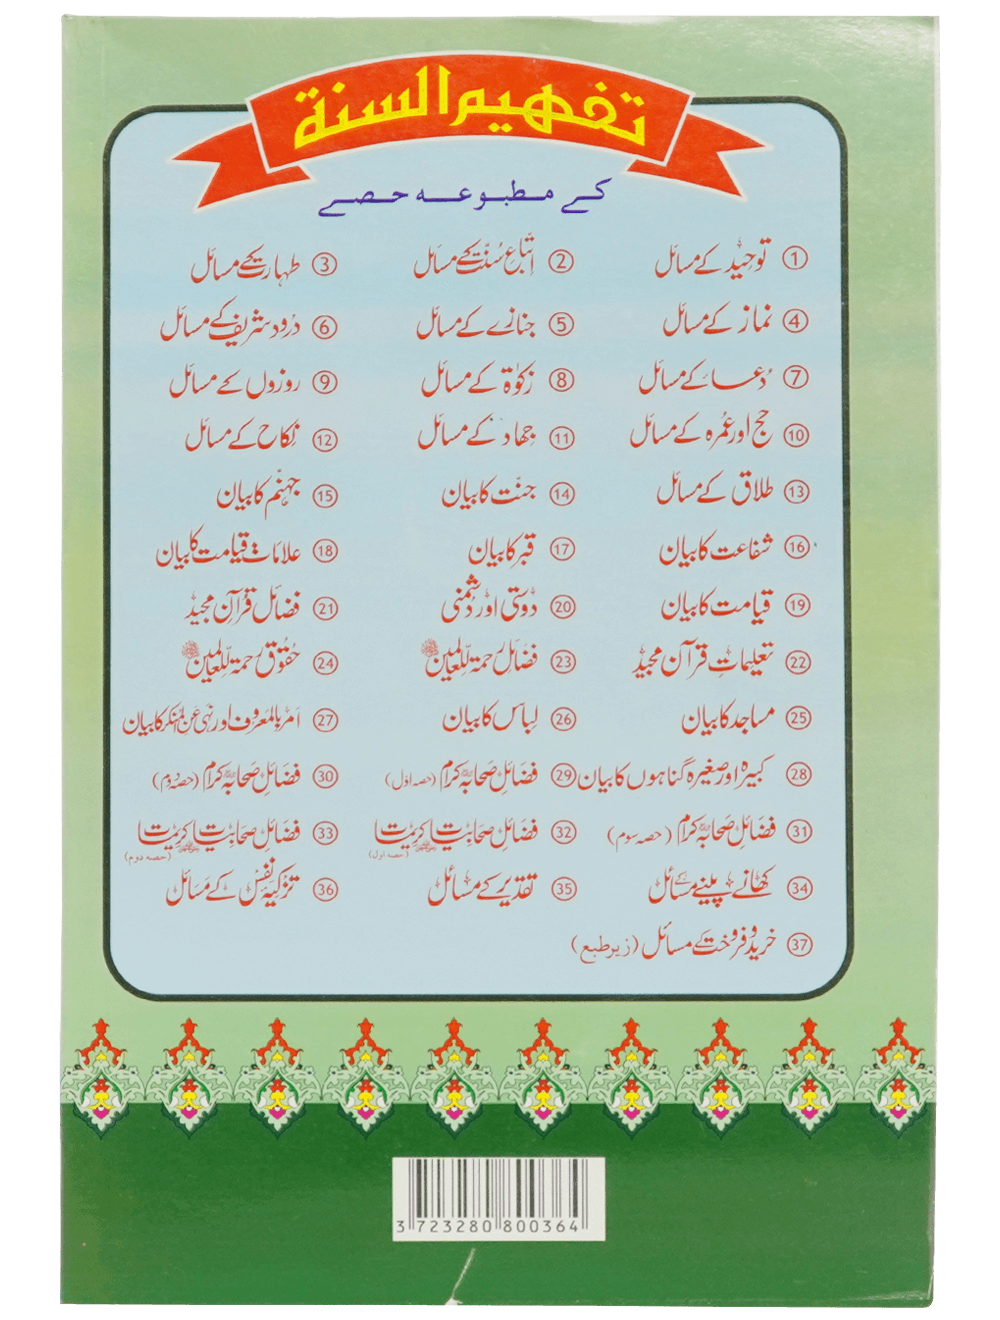 تفہیم السنۃ
کے مطبوعہ حصے
① توحید کے مسائل ② اتباع سنت کے مسائل ③ طہارت کے مسائل
④ نماز کے مسائل ⑤ جنازے کے مسائل ⑥ درود شریف کے مسائل
⑦ دُعا کے مسائل ⑧ زکوٰۃ کے مسائل ⑨ روزوں کے مسائل
⑩ حج اور عُمرہ کے مسائل ⑪ جہاد کے مسائل ⑫ نکاح کے مسائل
⑬ طلاق کے مسائل ⑭ جنت کا بیان ⑮ جہنم کا بیان
⑯ شفاعت کا بیان ⑰ قبر کا بیان ⑱ علامات قیامت کا بیان
⑲ قیامت کا بیان ⑳ دوستی اور دشمنی ㉑ فضائل قرآن مجید
㉒ تعلیمات قرآن مجید ㉓ فضائل رحمۃ للعالمین ﷺ ㉔ حقوق رحمۃ للعالمین ﷺ
㉕ مساجد کا بیان ㉖ لباس کا بیان ㉗ امر بالمعروف اور نہی عن المنکر کا بیان
㉘ کبیرہ اور صغیرہ گناہوں کا بیان ㉙ فضائل صحابہ کرام (حصہ اول) ㉚ فضائل صحابہ کرام (حصہ دوم)
㉛ فضائل صحابہ کرام (حصہ سوم) ㉜ فضائل صحابیات (حصہ اول) ㉝ فضائل صحابیات (حصہ دوم)
㉞ کھانے پینے کے مسائل ㉟ تقدیر کے مسائل ㊱ تزکیہ نفس کے مسائل
㊲ خرید و فروخت کے مسائل (زیر طبع)
3 723280 800364